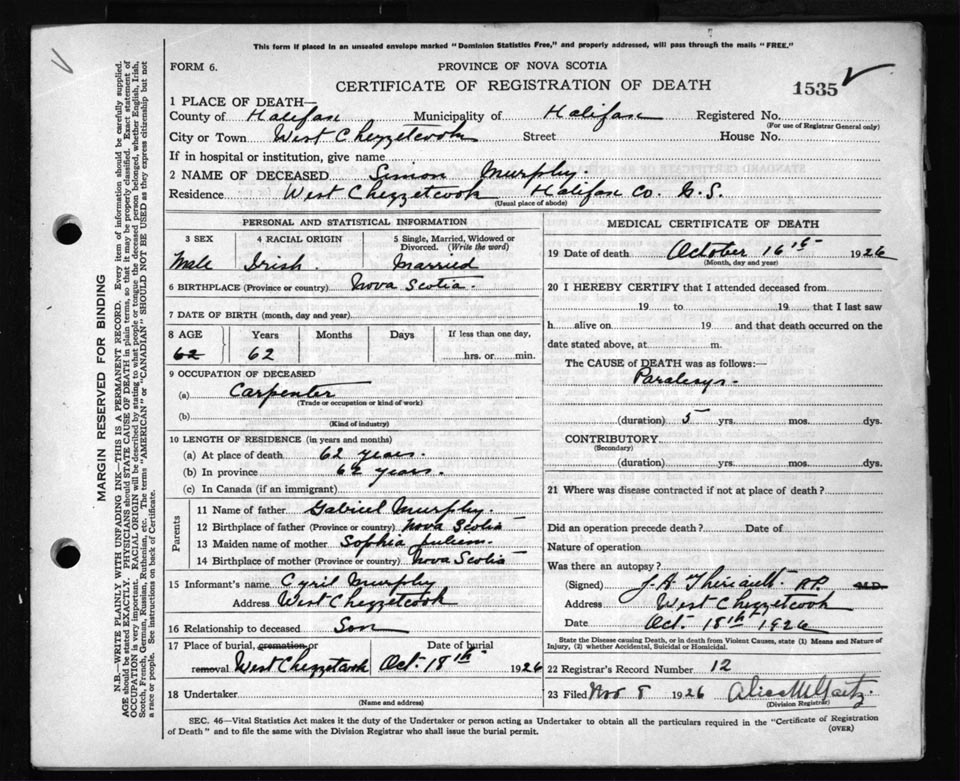 This form if placed in an unsealed envelope marked "Dominion Statistics Free," and properly addressed, will pass through the mails "FREE."
FORM 6.
PROVINCE OF NOVA SCOTIA
CERTIFICATE OF REGISTRATION OF DEATH
1535
1 PLACE OF DEATH—
County of Halifax Municipality of Halifax Registered No.
(For use of Registrar General only)
City or Town West Chezzetcook Street House No.
If in hospital or institution, give name
2 NAME OF DECEASED Simon Murphy.
Residence West Chezzetcook Halifax Co. N.S.
(Usual place of abode)
PERSONAL AND STATISTICAL INFORMATION
3 SEX 4 RACIAL ORIGIN 5 Single, Married, Widowed or Divorced. (Write the word)
Male Irish. Married
6 BIRTHPLACE (Province or country) Nova Scotia.
7 DATE OF BIRTH (month, day and year)
8 AGE Years Months Days If less than one day,
62 62 hrs. or min.
9 OCCUPATION OF DECEASED
(a) Carpenter
(Trade or occupation or kind of work)
(b)
(Kind of industry)
10 LENGTH OF RESIDENCE (in years and months)
(a) At place of death 62 years.
(b) In province 62 years.
(c) In Canada (if an immigrant)
Parents
11 Name of father Gabriel Murphy.
12 Birthplace of father (Province or country) Nova Scotia
13 Maiden name of mother Sophia
14 Birthplace of mother (Province or country) Nova Scotia
15 Informant's name Cyril Murphy
Address West Chezzetcook
16 Relationship to deceased Son
17 Place of burial, cremation or removal West Chezzetcook Date of burial Oct. 18th 1926
18 Undertaker
(Name and address)
MEDICAL CERTIFICATE OF DEATH
19 Date of death October 16th 1926
(Month, day and year)
20 I HEREBY CERTIFY that I attended deceased from
19 to 19 that I last saw
h alive on 19 and that death occurred on the
date stated above, at m.
The CAUSE of DEATH was as follows:—
Paralesys.
(duration) 5 yrs. mos. dys.
CONTRIBUTORY
(Secondary)
(duration) yrs. mos. dys.
21 Where was disease contracted if not at place of death?
Did an operation precede death? Date of
Nature of operation
Was there an autopsy?
(Signed) J. A. Theriault P.P. M.D.
Address West Chezzetcook
Date Oct. 18th 1926
State the Disease causing Death, or in death from Violent Causes, state (1) Means and Nature of
Injury, (2) whether Accidental, Suicidal or Homicidal.
22 Registrar's Record Number 12
23 Filed Nov 8 1926 Alice M Gaetz.
(Division Registrar)
SEC. 46—Vital Statistics Act makes it the duty of the Undertaker or person acting as Undertaker to obtain all the particulars required in the "Certificate of Registration
of Death" and to file the same with the Division Registrar who shall issue the burial permit.
(OVER)
MARGIN RESERVED FOR BINDING
N.B.—WRITE PLAINLY WITH UNFADING INK—THIS IS A PERMANENT RECORD. Every item of information should be carefully supplied.
AGE should be stated EXACTLY. PHYSICIANS should STATE CAUSE OF DEATH in plain terms, so that it may be properly classified. Exact statement of
OCCUPATION is very important. RACIAL ORIGIN will be described by stating to what people or tongue the deceased person belonged, whether English, Irish,
Scotch, French, German, Russian, Ruthenian, etc. The terms "AMERICAN" or "CANADIAN" SHOULD NOT BE USED as they express citizenship but not
a race or people. See instructions on back of Certificate.